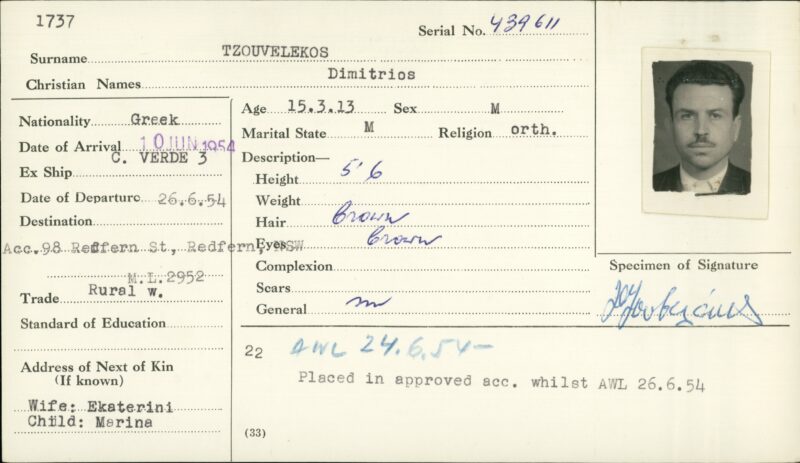 1737
Serial No. 439611
Surname TZOUVELEKOS
Christian Names Dimitrios
Nationality Greek
Date of Arrival 10 JUN 1954
Ex Ship C. VERDE 3
Date of Departure 26.6.54
Destination
Acc. 98 Redfern St, Redfern, NSW
M.L.2952
Trade Rural w.
Standard of Education
Address of Next of Kin
(If known)
Wife: Ekaterini
Child: Marina
Age 15.3.13 Sex M
Marital State M Religion orth.
Description—
Height 5'6
Weight
Hair brown
Eyes brown
Complexion
Scars
General
Specimen of Signature
22 AWL 24.6.54-
Placed in approved acc. whilst AWL 26.6.54
(33)